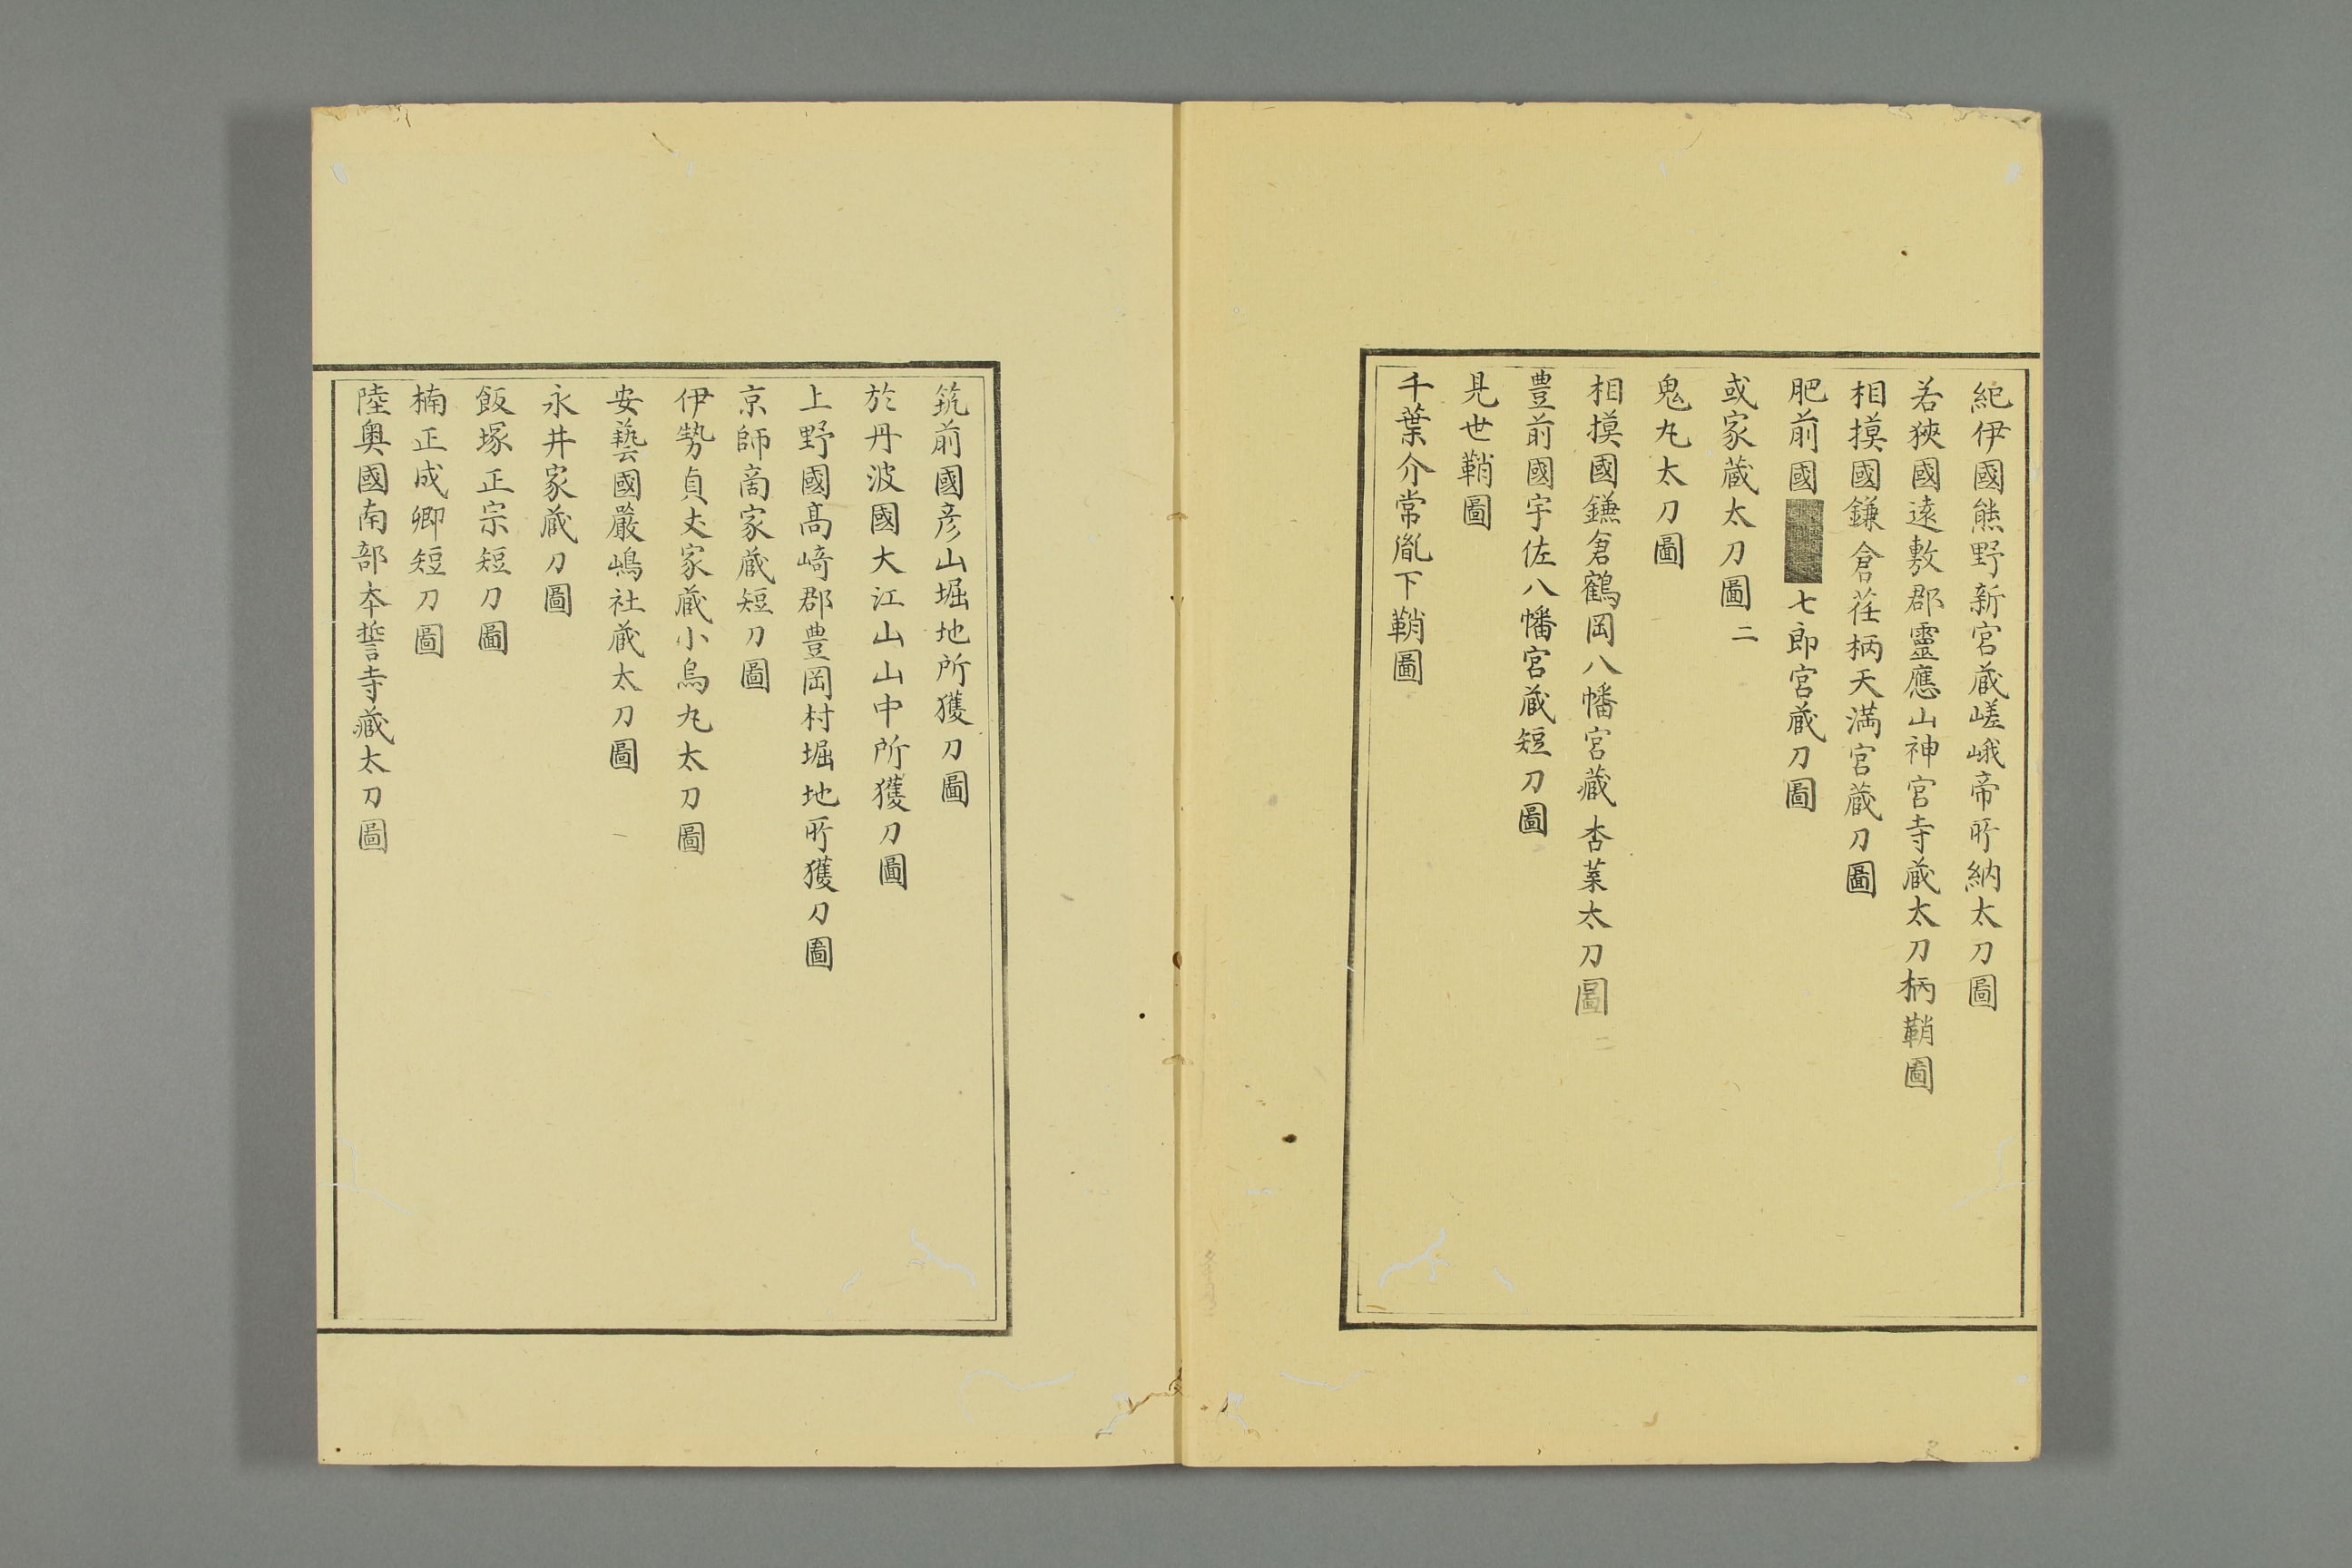 紀伊國熊野新宮蔵嵯峨帝所納太刀圖
若狹國遠敷郡靈應山神宮寺蔵太刀柄鞘圖
相摸國鎌倉荏柄天満宮蔵刀圖
肥前國 七郎宮蔵刀圖
或家蔵太刀圖二
鬼丸太刀圖
相摸國鎌倉鶴岡八幡宮蔵杏葉太刀圖二
豊前國宇佐八幡宮蔵短刀圖
見世鞘圖
千葉介常胤下鞘圖
筑前國彦山堀地所獲刀圖
於丹波國大江山山中所獲刀圖
上野國髙﨑郡豊岡村堀地所獲刀圖
京師啇家蔵短刀圖
伊勢貞丈家蔵小烏丸太刀圖
安藝國嚴嶋社蔵太刀圖
永井家蔵刀圖
飯塚正宗短刀圖
楠正成卿短刀圖
陸奥國南部夲誓寺蔵太刀圖